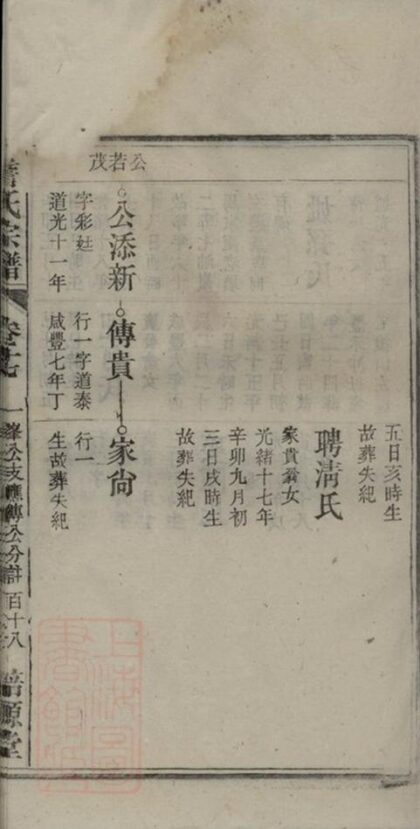 五日亥時生
故葬失紀
聘清氏
家貴翕女
光緒十七年
辛卯九月初
三日戌時生
故葬失紀
公若茂
公添新
傳貴
家尙
字彩廷
行一字道泰
行一
道光十一年
咸豐七年丁
生故葬失紀
氏宗譜
卷十七
一峯公支應傳公分計
百十八
培源堂